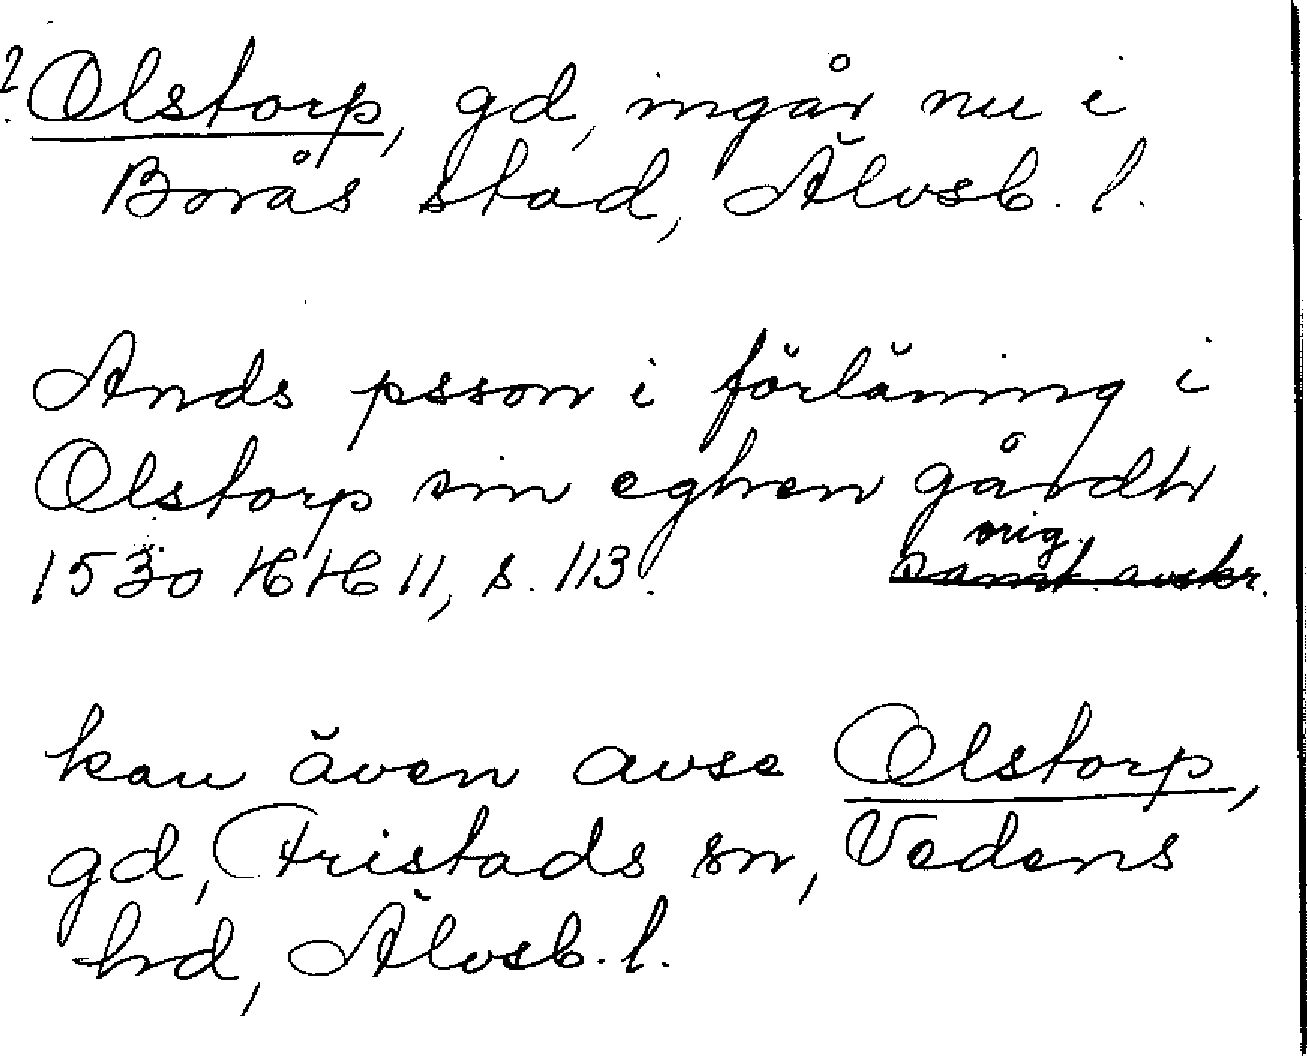 ? Olstorp, gd, ingår nu i
Borås stad, Älvsb. l.
Ands psson i förläning i
Olstorp sin eghen gårdh
orig.
1530 HH 11, s. 113. samt. avskr.
kan även avse Olstorp,
gd, Fristads sn, Vedens
hd, Älvsb. l.